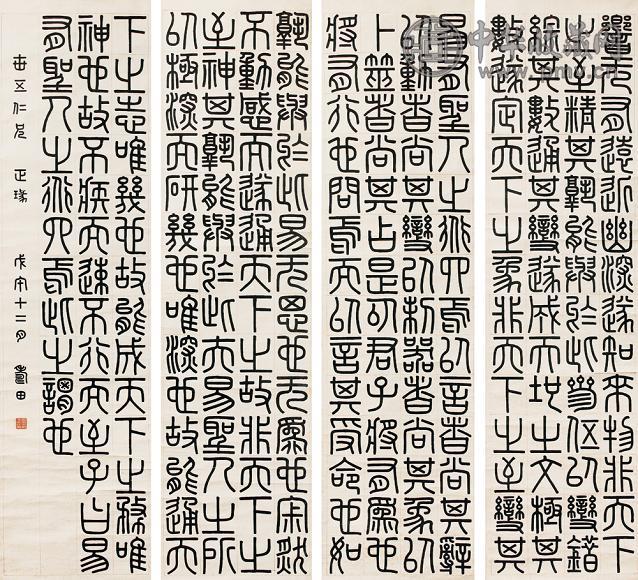 嚮无有遠近幽深遂知來物非天下
之至精其孰能與於此參伍以變錯
綜其數通其變遂成天地之文極其
數遂定天下之象非天下之至變其
易有聖人之道四焉以言者尚其辭
以動者尚其變以制器者尚其象以
卜筮者尚其占是以君子將有爲也
將有行也問焉而以言其受命也如
孰能與於此易无思也无爲也寂然
不動感而遂通天下之故非天下之
至神其孰能與於此夫易聖人之所
以極深而研幾也唯深也故能通天
下之志唯幾也故能成天下之務唯
神也故不疾而速不行而至子曰易
有聖人之道四焉此之謂也
世五仁兄 正瑑 戊寅十二月 壽田